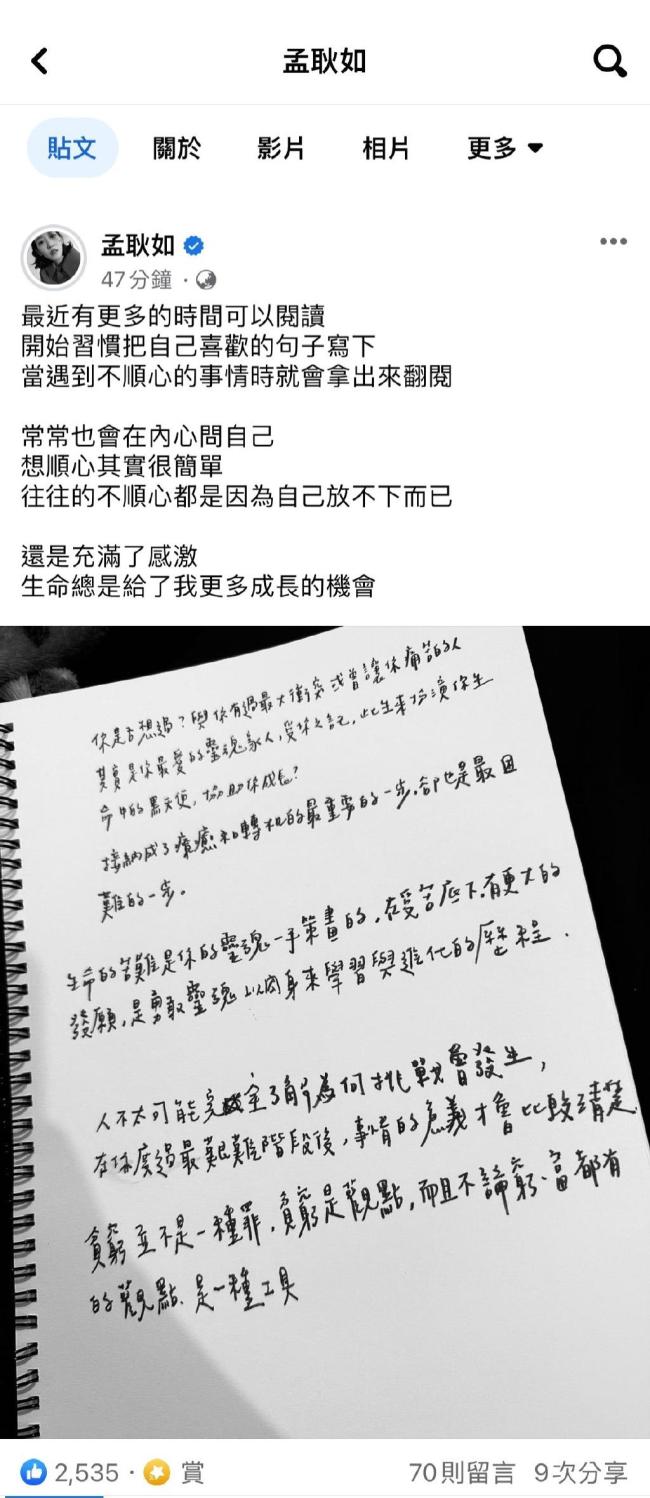 孟耿如
貼文 關於 影片 相片 更多
孟耿如
47分鐘 ·
最近有更多的時間可以閱讀
開始習慣把自己喜歡的句子寫下
當遇到不順心的事情時就會拿出來翻閱
常常也會在內心問自己
想順心其實很簡單
往往的不順心都是因為自己放不下而已
還是充滿了感激
生命總是給了我更多成長的機會
你是否想過？與你有過最大衝突或曾讓你痛苦的人
其實是你最愛的靈魂家人，受你之託，此生來扮演你生
命中的黑天使，協助你成長？
接納成了療癒和轉化的最重要的一步，卻也是最困
難的一步。
生命的苦難是你的靈魂一手策畫的，在受苦底下，有更大的
發願，是勇敢靈魂以肉身來學習與進化的歷程．
人不太可能完全了解為何挑戰會發生，
在你度過最艱難階段後，事情的意義才會比較清楚．
貧窮並不是一種罪，貧窮是觀點，而且不論窮、富都有
的觀點、是一種工具
2,535 · 賞 70則留言 9次分享